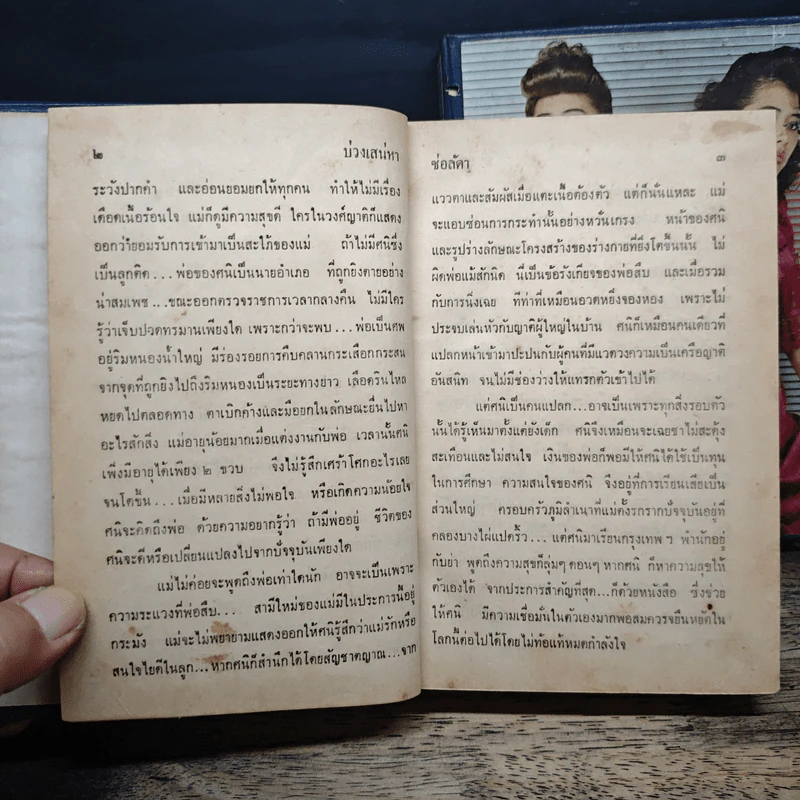 ๒ บ่วงเสน่หา
ระวังปากคำ และอ่อนยอมยกให้ทุกคน ทำให้ไม่มีเรื่อง
เดือดเนื้อร้อนใจ แม่ก็ดูมีความสุขดี ใครในวงศ์ญาติก็แสดง
ออกว่ายอมรับการเข้ามาเป็นสะใภ้ของแม่ ถ้าไม่มีศนิซึ่ง
เป็นลูกติด...พ่อของศนิเป็นนายอำเภอ ที่ถูกยิงตายอย่าง
น่าสมเพช...ขณะออกตรวจราชการเวลากลางคืน ไม่มีใคร
รู้ว่าเจ็บปวดทรมานเพียงใด เพราะกว่าจะพบ...พ่อเป็นศพ
อยู่ริมหนองน้ำใหญ่ มีร่องรอยการคืบคลานกระเสือกกระสน
จากจุดที่ถูกยิงไปถึงริมหนองเป็นระยะทางยาว เลือดรินไหล
หยดไปตลอดทาง ตาเบิกค้างและมือยกในลักษณะยื่นไปหา
อะไรสักสิ่ง แม่อายุน้อยมากเมื่อแต่งงานกับพ่อ เวลานั้นศนิ
เพิ่งมีอายุได้เพียง ๒ ขวบ จึงไม่รู้สึกเศร้าโศกอะไรเลย
จนโตขึ้น...เมื่อมีหลายสิ่งไม่พอใจ หรือเกิดความน้อยใจ
ศนิจะคิดถึงพ่อ ด้วยความอยากรู้ว่า ถ้ามีพ่ออยู่ ชีวิตของ
ศนิจะดีหรือเปลี่ยนแปลงไปจากปัจจุบันเพียงใด
แม่ไม่ค่อยจะพูดถึงพ่อเท่าใดนัก อาจจะเป็นเพราะ
ความระแวงที่พ่อสืบ... สามีใหม่ของแม่มีในประการนี้อยู่
กระมัง แม่จะไม่พยายามแสดงออกให้ศนิรู้สึกว่าแม่รักหรือ
สนใจไยดีในลูก...หากศนิก็สำนึกได้โดยสัญชาตญาณ...จาก
ช่อลัดา ๓
แววตาและสัมผัสเมื่อแตะเนื้อต้องตัว แต่ก็นั่นแหละ แม่
จะแอบซ่อนการกระทำนั้นอย่างหวั่นเกรง หน้าของศนิ
และรูปร่างลักษณะโครงสร้างของร่างกายที่ยิ่งโตขึ้นนั้น ไม่
ผิดพ่อแม้สักนิด นี่เป็นข้อรังเกียจของพ่อสืบ และเมื่อรวม
กับการนิ่งเฉย ทีท่าที่เหมือนอวดหยิ่งของหอง เพราะไม่
ประจบเล่นหัวกับญาติผู้ใหญ่ในบ้าน ศนิก็เหมือนคนเดียวที่
แปลกหน้าเข้ามาปะปนกับผู้คนที่มีแวดวงความเป็นเครือญาติ
อันสนิท จนไม่มีช่องว่างให้แทรกตัวเข้าไปได้
แต่ศนิเป็นคนแปลก...อาจเป็นเพราะทุกสิ่งรอบตัว
นั้นได้รู้เห็นมาตั้งแต่ยังเด็ก ศนิจึงเหมือนจะเฉยชาไม่สะดุ้ง
สะเทือนและไม่สนใจ เงินของพ่อก็พอมีให้ศนิได้ใช้เป็นทุน
ในการศึกษา ความสนใจของศนิ จึงอยู่ที่การเรียนเสียเป็น
ส่วนใหญ่ ครอบครัวภูมิลำเนาที่แม่ตั้งรกรากปัจจุบันอยู่ที่
คลองบางไผ่แปดริ้ว...แต่ศนิมาเรียนกรุงเทพฯ พำนักอยู่
กับย่า พูดถึงความสุขก็ลุ่มๆ ดอนๆ หากศนิ ก็หาความสุขให้
ตัวเองได้ จากประการสำคัญที่สุด...ก็ด้วยหนังสือ ซึ่งช่วย
ให้ศนิ มีความเชื่อมั่นในตัวเองมากพอสมควรจะยืนหยัดใน
โลกนี้ต่อไปได้โดยไม่ท้อแท้หมดกำลังใจ